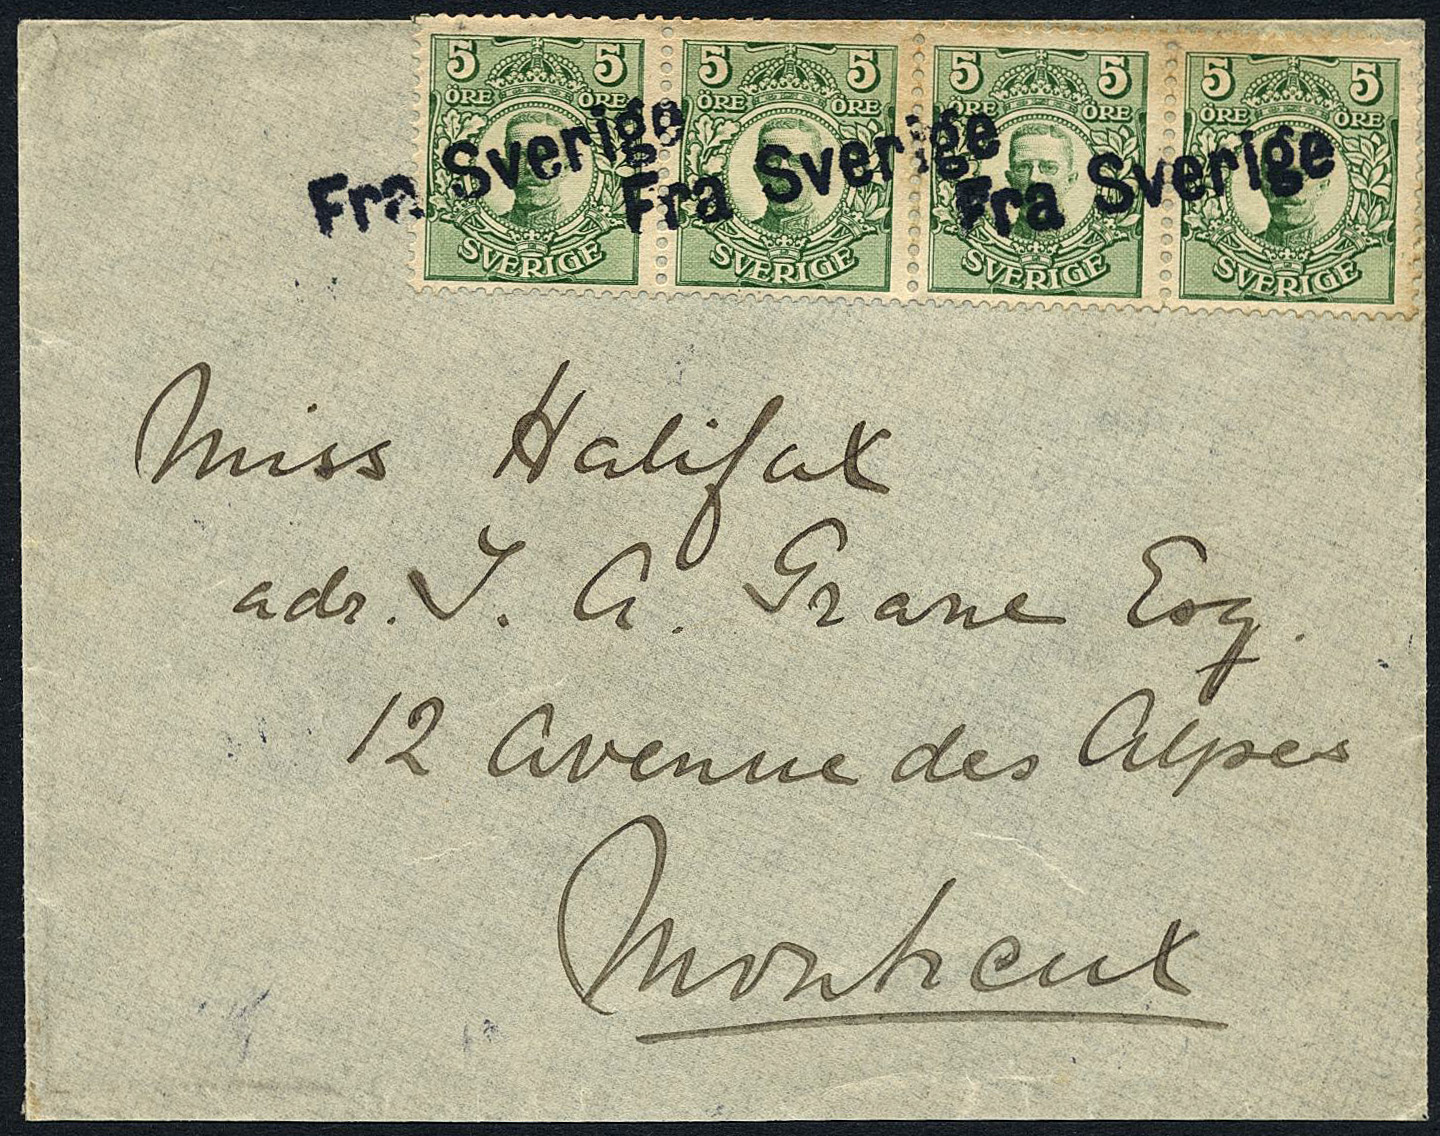 5 5 5 5 5 5 5 5
ÖRE ÖRE ÖRE ÖRE ÖRE ÖRE ÖRE ÖRE
Fra Sverige Fra Sverige Fra Sverige
SVERIGE SVERIGE SVERIGE SVERIGE
Miss Halifax
adr. J. A. Grane Esq.
12 Avenue des Alpes
Montreux